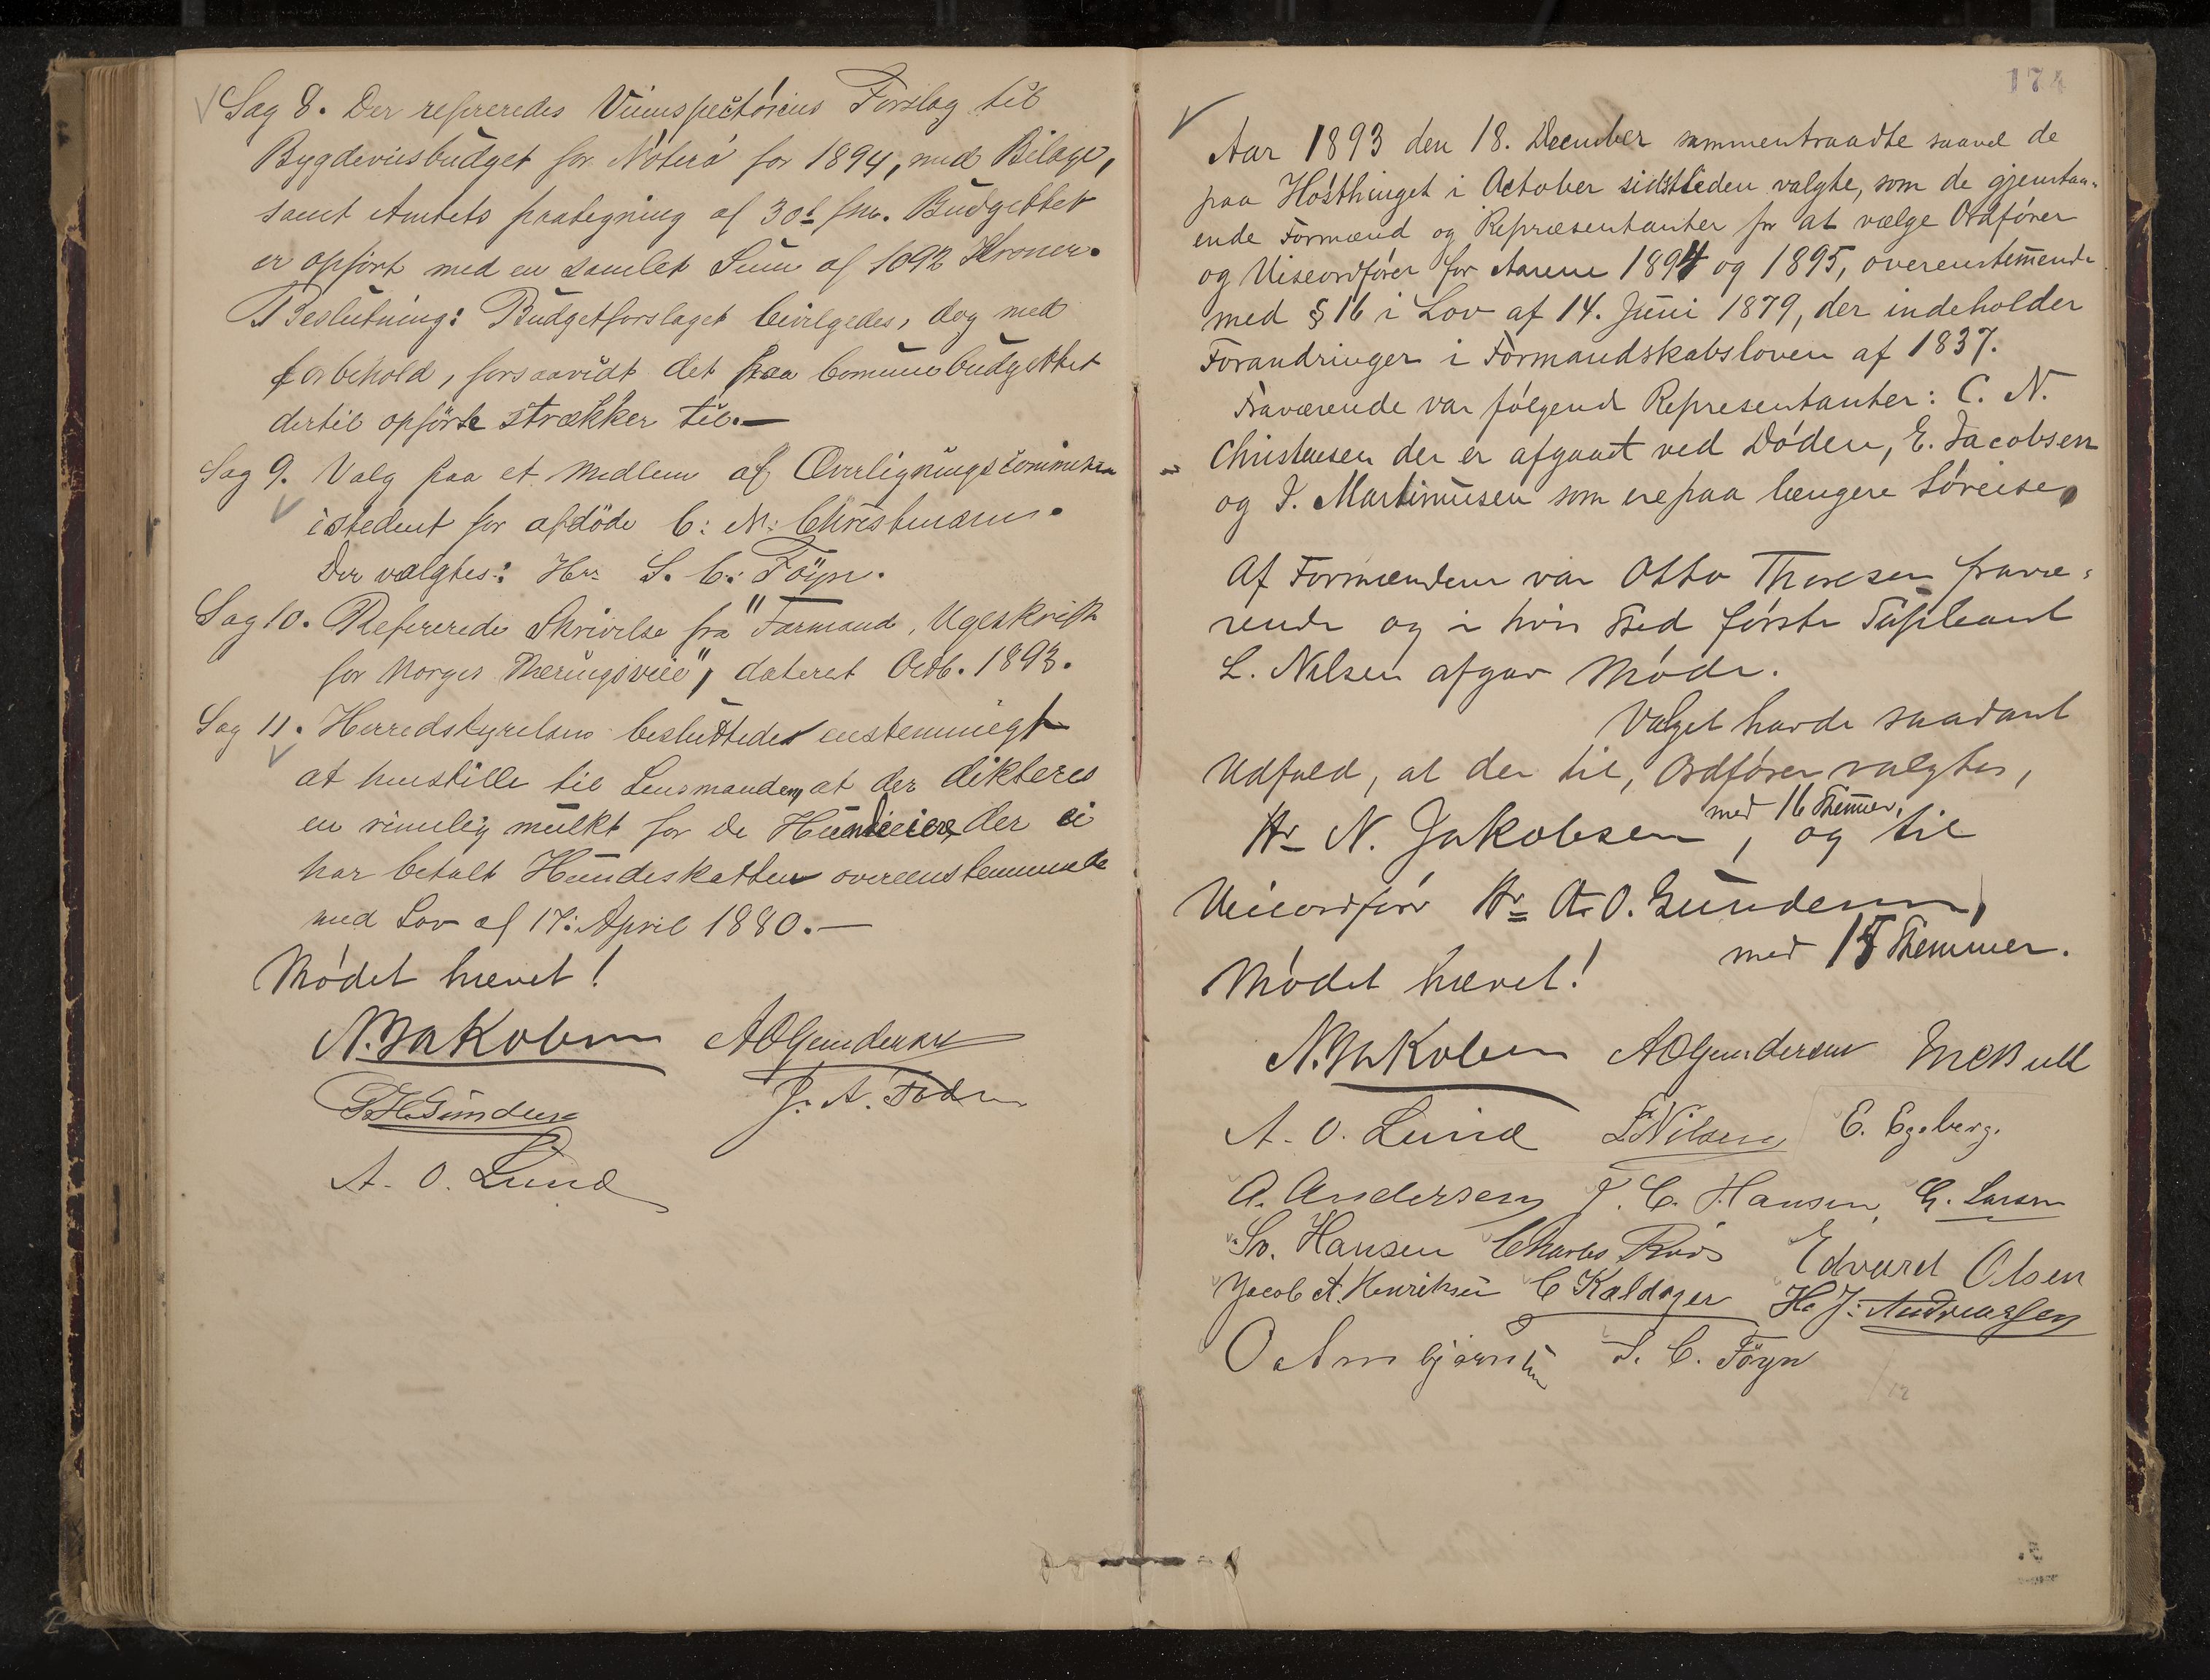 Sag 8. Der refereredes Veiinspectörens Forslag til
Bygdeveisbudget for Nöterö for 1894, med Bilage,
samt Amtets paategning af 30d fm. Budgettet
er opfört med en samlet Sum af 1092 Kroner.
Beslutning: Budgetforslaget bevilgedes, dog med
forbehold, forsaavidt det paa Comunebudgettet
dertil opförte strækker til.—
Sag 9. Valg paa et Medlem af Overligningscommisen
istedent for afdöde C: N: Christensen.
Der valgtes: Hr: S. C: Föyn.
Sag 10. Refererede Skrivelse fra "Farmand, Ugeskrift
for Norges Næringsveie", dateret Octb. 1893.
Sag 11. Herredstyrelsen besluttedes enstemmigt
at henstille til Lensmanden, at der dikteres
en rimelig mulkt for de Hundeiere, der ei
har betalt Hundeskatten overeenstemmende
med Lov af 17: April 1880.—
Mödet hævet!
N. Jakobsen AOGundersen
P.H.Gundersen J. A. Foden
A. O. Lund
174
Aar 1893 den 18. December sammentraadte saavel de
paa Hösthinget i October sidstleden valgte, som de gjenstaa-
ende Formænd og Repræsentanter for at vælge Ordförer
og Viseordförer for Aarene 1894 og 1895, overenstemende
med § 16 i Lov af 14. Juni 1879, der indeholder
Forandringer i Formandskabsloven af 1837.
Fraværende var fölgende Representanter: C. N.
Christensen der er afgaaet ved Döden, E. Jacobsen
og J. Martinusen som ere paa længere Söreise,
Af Formændene var Otto Thoresen fravæ-
rende og i hvis sted förste Supleant
L. Nilsen afgav Möde.
Valget havde saadant
Udfald, at der til, Ordförer valgtes,
med 16 Stemmer,
Hr N. Jakobsen, og til
Viceordförer Hr A. O. Gundersen,
med 15 Stemmer.
Mödet hævet!
N. Jakobsen AOGundersen Bull
A. O. Lund L Nilsen E. Egeberg.
A. Andersen F. C. Hansen, G. Larsen
Sv. Hansen Charles Roos Edvard Olsen
Jacob A. Henriksen C Kaldager H. J: Andreassen
O Arnbjörnsen S. C. Föyn